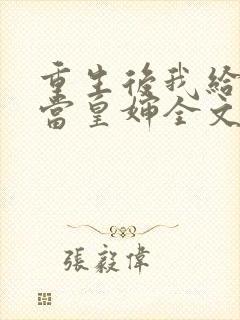 重生後我給
當皇婶全文
張毅偉